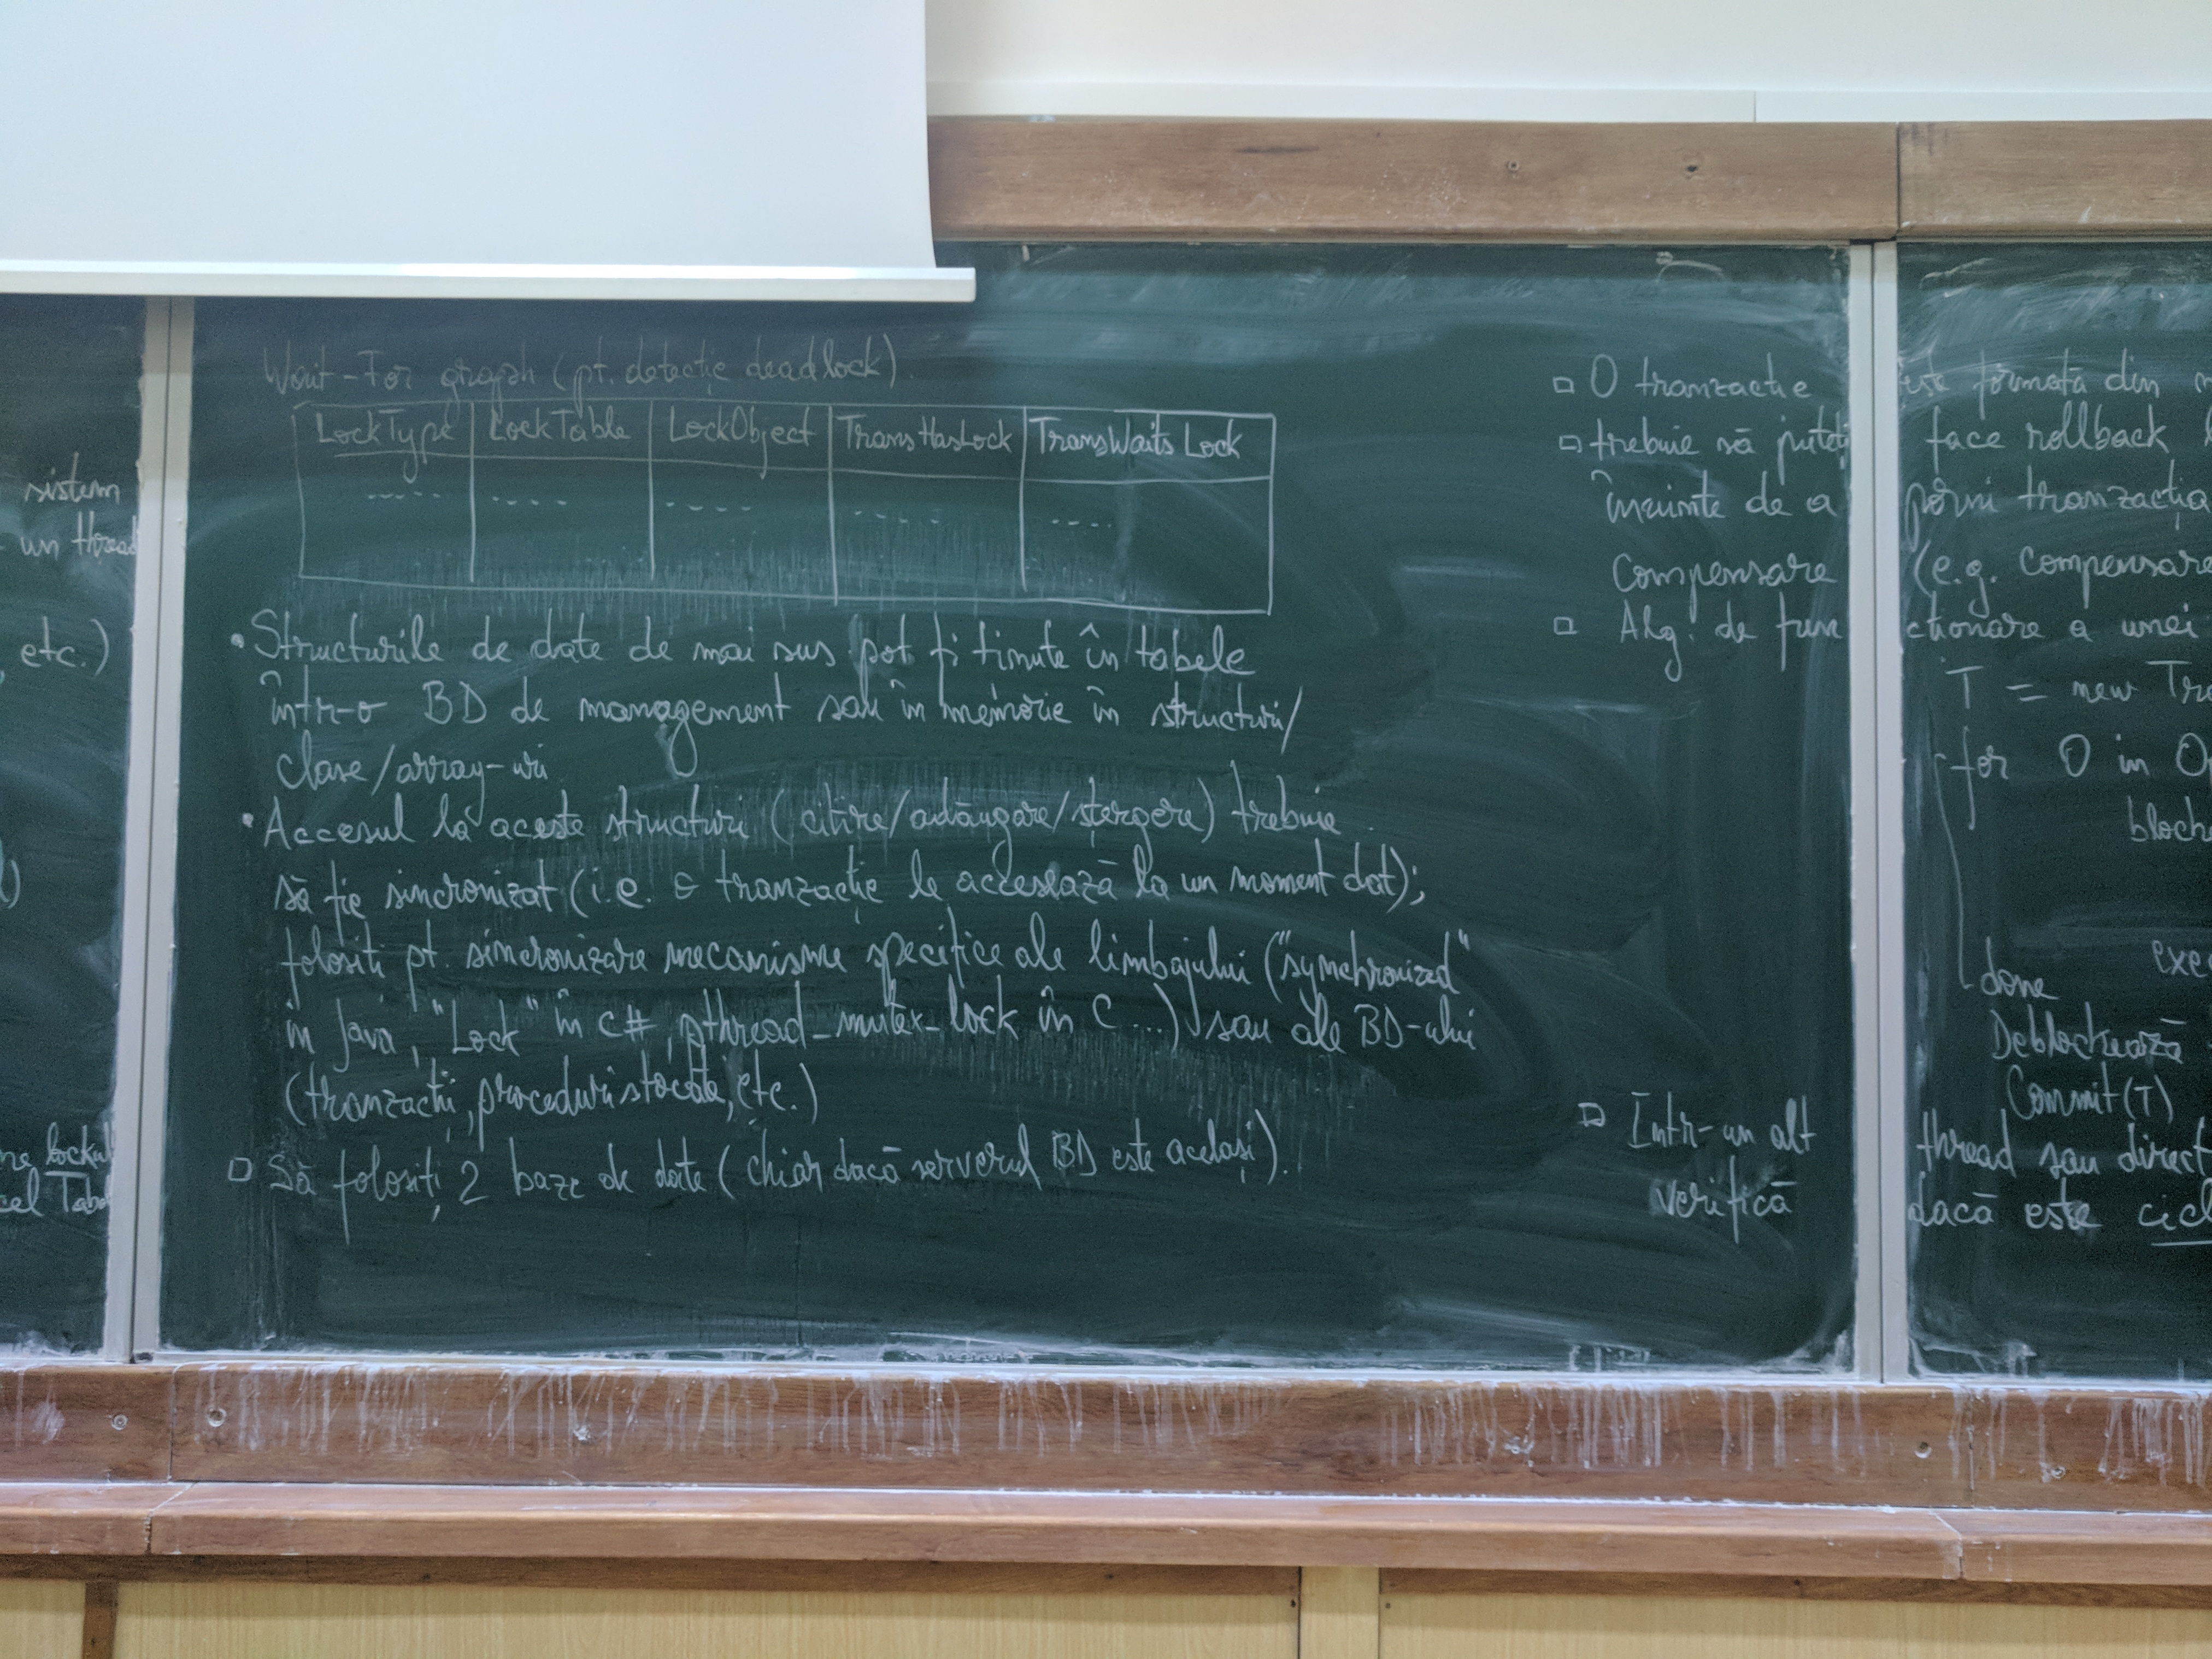 Wait-For graph (pt. detecție deadlock).
LockType LockTable LockObject TransHasLock TransWaitsLock
• Structurile de date de mai sus pot fi ținute în tabele
într-o BD de management sau în memorie în structuri/
clase/array-uri
• Accesul la aceste structuri (citire/adăugare/ștergere) trebuie
să fie sincronizat (i.e. o tranzacție le accesează la un moment dat);
folosiți pt. sincronizare mecanisme specifice ale limbajului ("synchronized"
în java, "Lock" în C#, pthread_mutex_lock în C ...) sau ale BD-ului
(tranzacții, proceduri stocate, etc.)
□ Să folosiți 2 baze de date (chiar dacă serverul BD este același).
sistem
un thread
etc.)
lockul
cel Tab
□ O tranzacție este formată din
□ trebuie să puteți face rollback
înainte de a porni tranzacția
Compensare (e.g. compensare
□ Alg. de funcționare a unei
T = new Tra
for O in O
block
exe
done
Deblochează
Commit(T)
□ Într-un alt thread sau direct
verifică dacă este cicl